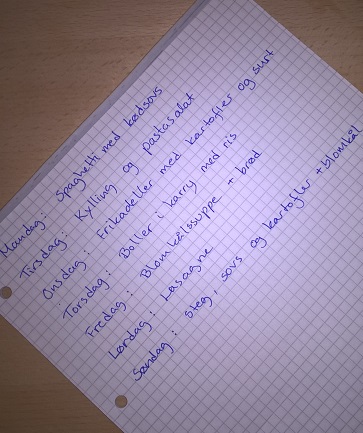 Mandag: Spaghetti med kødsovs
Tirsdag: Kylling og pastasalat
Onsdag: Frikadeller med kartofler og surt
Torsdag: Boller i karry med ris
Fredag: Blomkålssuppe + brød
Lørdag: Lasagne
Søndag: Steg, sovs og kartofler + blomkål